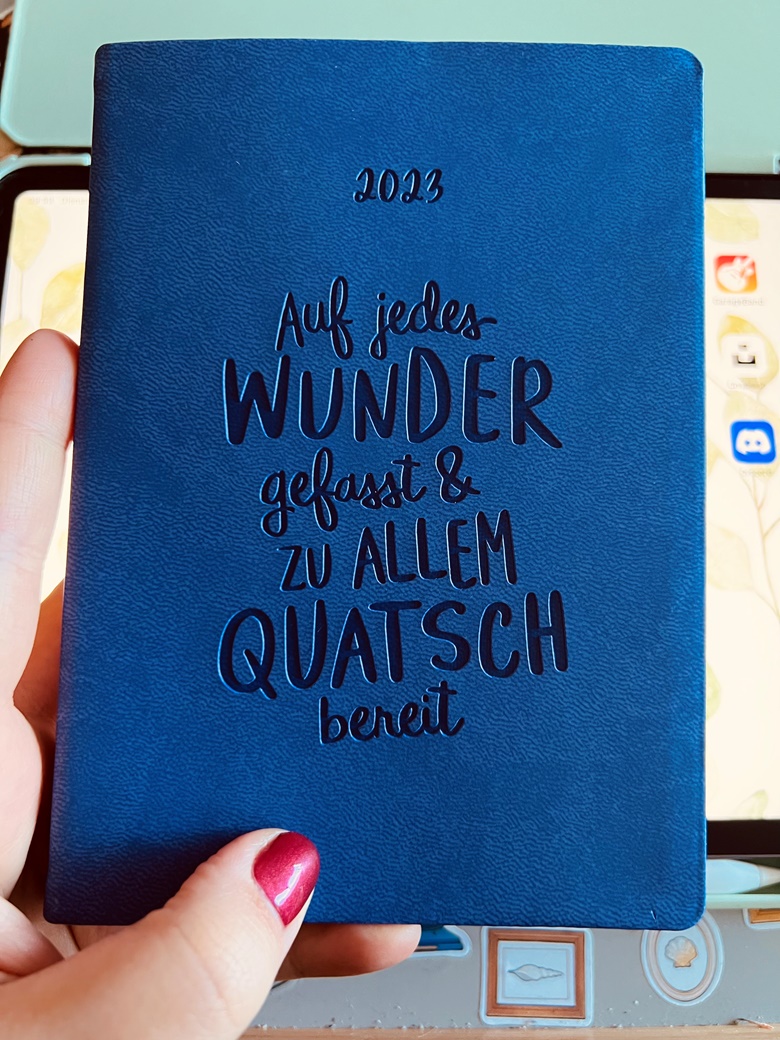 2023
Auf jedes
WUNDER
gefasst &
ZU ALLEM
QUATSCH
bereit